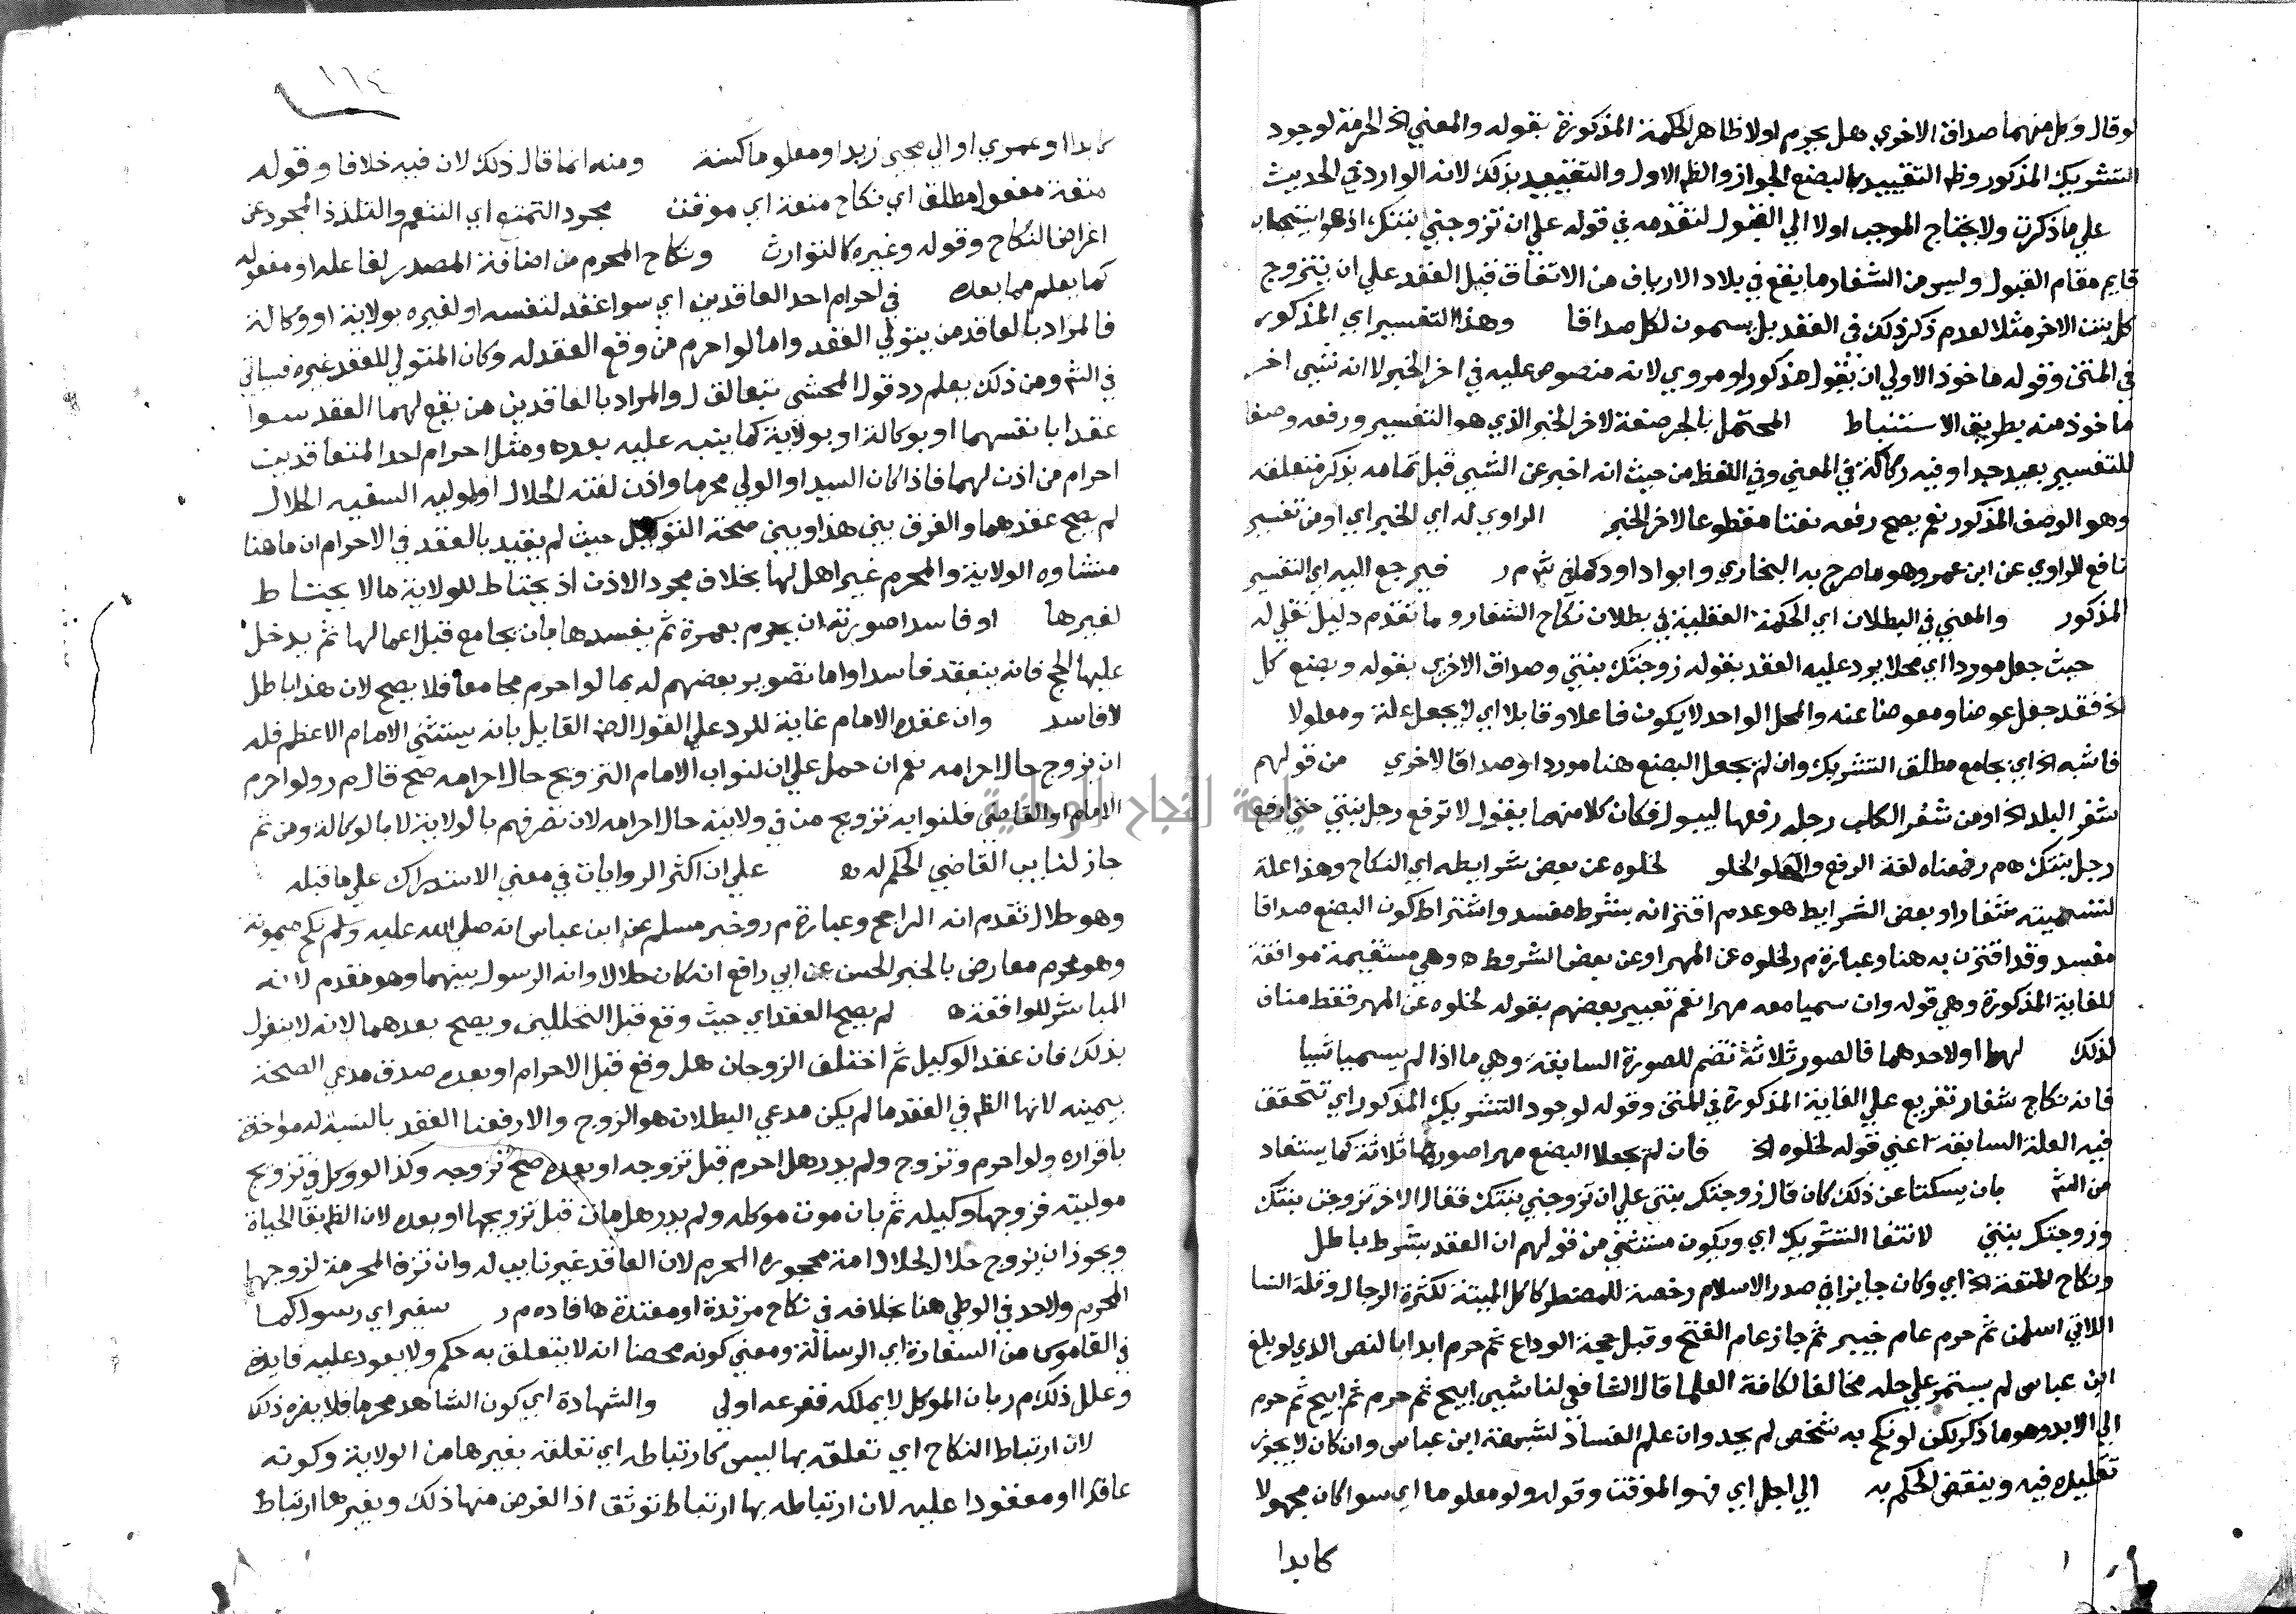 لو قال وكل منهما صداق الاخري هل يحرم اولا ظاهر الحكمة المذكورة بقوله والمعني الخ الحرمة لوجود
التشريك المذكور وظ التقييد بالبضع الجواز والظ الاول والتقييد بذلك لانه الوارد في الحديث
علي ما ذكرت ولا يحتاج الموجب اولا الي القبول لتقدمه في قوله علي ان تزوجني بنتك اذ هو استيجاب
قايم مقام القبول وليس من الشغار ما يقع في بلاد الارياف من الاتفاق قبل العقد علي ان يتزوج
كل بنت الاخر مثلا لعدم ذكر ذلك في العقد بل يسمون لكل صداقا وهذا التفسير اي المذكور
في المتن وقوله ماخوذ الاولي ان يقول مذكور او مروي لانه منصوص عليه في اخر الخبر لا انه شيي اخر
ماخوذ منه بطريق الاستنباط المحتمل بالجر صفة لاخر الخبر الذي هو التفسير ورفعه وصفا
للتفسير بعيد جدا وفيه ركاكة في المعني وفي اللفظ من حيث انه اخبر عن الشيي قبل تمامه بذكر متعلقه
وهو الوصف المذكور نعم يصح رفعه نعتا مقطوعا لاخر الخبر الراوي له اي الخبر اي او من تفسير
نافع الراوي عن ابن عمر وهو ما صرح به البخاري وابو داود كما في ش م ر فيرجع اليه اي التفسير
المذكور والمعني في البطلان اي الحكمة العقلية في بطلان نكاح الشغار وما تقدم دليل نقلي له
حيث جعل موردا اي محلا يرد عليه العقد بقوله زوجتك بنتي وصداق الاخري بقوله وبضع كل
الخ فقد جعل عوضا ومعوضا عنه والمحل الواحد لا يكون فاعلا وقابلا اي لا يجعل علة ومعلولا
فاشبه الخ اي بجامع مطلق التشريك وان لم يجعل البضع هنا موردا وصداقا لاخري من قولهم
شغر البلد الخ او من شغر الكلب رجله رفعها ليبول فكان كلا منهما يقول لا ترفع رجل بنتي حتي ارفع
رجل بنتك م ر فمعناه لغة الرفع والخلو لخلوه عن بعض شرايطه اي النكاح وهذا علة
لتسميته شغارا وبعض الشرايط هو عدم اقترانه بشرط مفسد واشتراط كون البضع صداقا
مفسد وقد اقترن به هنا وعبارة م ر لخلوه عن المهر او عن بعض الشروط وهي مستقيمة موافقة
للغاية المذكورة وهي قوله وان سميا معه مهرا نعم تعبير بعضهم بقوله لخلوه عن المهر فقط مناف
لذلك لهما او لاحدهما فالصور ثلاثة تضم للصورة السابقة وهي ما اذا لم يسميا شيا
فانه نكاح شغار تفريع علي الغاية المذكورة في المتن وقوله لوجود التشريك المذكور اي تتحقق
فيه العلة السابقة اعني قوله لخلوه الخ فان لم يجعلا البضع مهرا صورها ثلاثة كما يستفاد
من الش بان يسكتا عن ذلك كان قال زوجتك بنتي علي ان تزوجني بنتك فقال الاخر تزوجت بنتك
وزوجتك بنتي لانتفا التشريك اي ويكون مستثني من قولهم ان العقد بشرط باطل
ونكاح المتعة الخ اي وكان جايزا في صدر الاسلام رخصة للمضطر كاكل الميتة لكثرة الرجال وقلة النسا
اللاتي اسلمن ثم حرم عام خيبر ثم جاز عام الفتح وقبل حجة الوداع ثم حرم ابدا بالنص الذي لو بلغ
ابن عباس لم يستمر علي حله مخالفا لكافة العلما قال الشافعي لنا شيي ابيح ثم حرم ثم ابيح ثم حرم
الي الابد وهو ما ذكر لكن لو نكح به شخص لم يحد وان علم الفساد لشبهة ابن عباس وان كان لا يجوز
تقليده فيه وينقض الحكم به الي اجل اي فهو الموقت وقوله ولو معلوما اي سوا كان مجهولا
كابدا
١١٤
كابدا او عمري او الي مجيي زيد او معلوما كسنة ومنه انما قال ذلك لان فيه خلافا وقوله
متعة مفعول مطلق اي نكاح متعة اي موقت مجرد التمتع اي التنعم والتلذذ المجرد عن
اغراض النكاح وقوله وغيره كالتوارث ونكاح المحرم من اضافة المصدر لفاعله او مفعوله
كما يعلم مما بعده في احرام احد العاقدين اي سوا عقد لنفسه او لغيره بولاية او وكالة
فالمراد بالعاقد من يتولي العقد واما لو احرم من وقع العقد له وكان المتولي للعقد غيره فسياتي
في الش ومن ذلك يعلم رد قول المحشي تبعا لق ل والمراد بالعاقدين من يقع لهما العقد سوا
عقدا بانفسهما او بوكالة او بولاية كما ينبه عليه بعده ومثل احرام احد المتعاقدين
احرام من اذن لهما فاذا كان السيد او الولي محرما واذن لقنه الحلال او لموليه السفيه الحلال
لم يصح عقدهما والفرق بين هذا وبين صحة التوكيل حيث لم يقيد بالعقد في الاحرام ان ما هنا
منشاوه الولاية والمحرم غير اهل لها بخلاف مجرد الاذن اذ يحتاط للولاية ما لا يحتاط
لغيرها او فاسدا صورته ان يحرم بعمرة ثم يفسدها بان يجامع قبل اعمالها ثم يدخل
عليها الحج فانه ينعقد فاسدا واما تصوير بعضهم له بما لو احرم مجامعا فلا يصح لان هذا باطل
لا فاسد وان عقده الامام غاية للرد علي القول الض القايل بانه يستثني الامام الاعظم فله
ان يزوج حال احرامه نعم ان حمل علي ان لنواب الامام التزويج حال احرامه صح قال م ر ولو احرم
الامام او القاضي فلنوابه تزويج من في ولايته حال احرامه لان تصرفهم بالولاية لا بالوكالة ومن ثم
جاز لنايب القاضي الحكم له علي ان اكثر الروايات في معني الاستدراك علي ما قبله
وهو حلال تقدم انه الراجح وعبارة م ر وخبر مسلم عن ابن عباس انه صلي الله عليه وسلم نكح ميمونة
وهو محرم معارض بالخبر الحسن عن ابي رافع انه كان حلالا وانه الرسول بينهما وهو مقدم لانه
المباشر للواقعة لم يصح العقد اي حيث وقع قبل التحللين ويصح بعدهما لانه لا ينعزل
بذلك فان عقد الوكيل ثم اختلف الزوجان هل وقع قبل الاحرام او بعده صدق مدعي الصحة
بيمينه لانها الظ في العقد ما لم يكن مدعي البطلان هو الزوج والا رفعنا العقد بالنسبة له مواخذة
باقراره ولو احرم وتزوج ولم يدر هل احرم قبل تزوجه او بعده صح تزوجه وكذا لو وكل في تزويج
موليته فزوجها وكيله ثم بان موت موكله ولم يدر هل مات قبل تزويجها او بعده لان الظ بقا الحياة
ويجوز ان يزوج حلال لحلال امة محجوره المحرم لان العاقد غير نايب له وان تزف المحرمة لزوجها
المحرم ولا حد في الوطي هنا بخلافه في نكاح مرتدة او معتدة افاده م ر سفير اي رسول كما
في القاموس من السفارة اي الرسالة ومعني كونه محضا انه لا يتعلق به حكم ولا يعود عليه فايدة
وعلل ذلك م ر بان الموكل لا يملكه ففرعه اولي والشهادة اي كون الشاهد محرما فلا يضر ذلك
لان ارتباط النكاح اي تعلقه بها ليس كارتباطه اي تعلقه بغيرها من الولاية وكونه
عاقدا او معقودا عليه لان ارتباطه بها ارتباط توثق اذ الغرض منها ذلك وبغيرها ارتباط